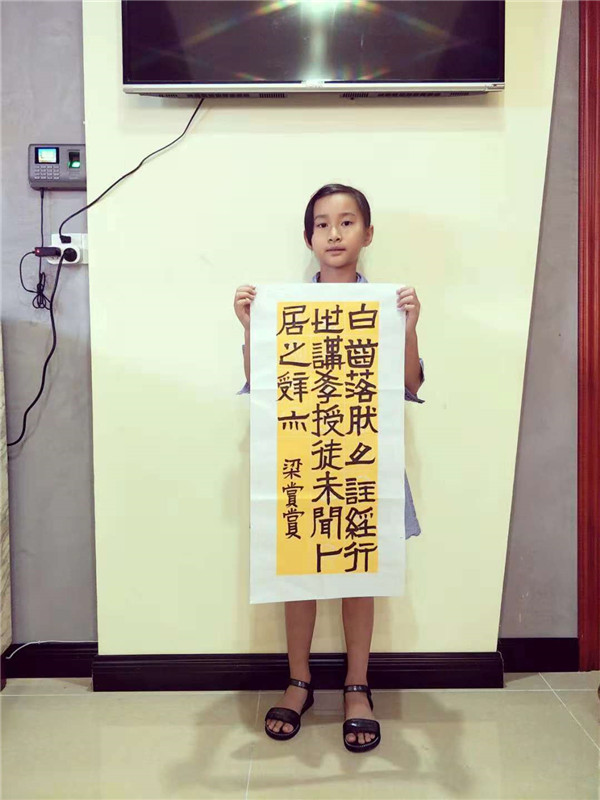 白齒落肰之註經行
世講孝授徒未聞卜
居之辤亦
梁賞賞